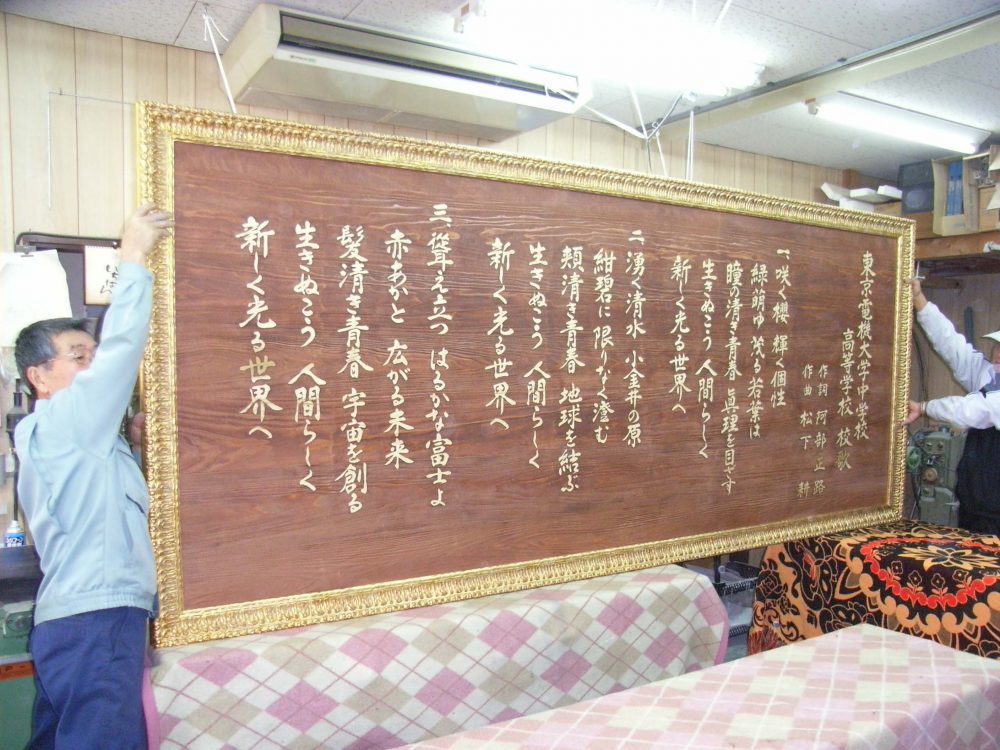 東京電機大学中学校
高等学校 校歌
作詞 阿部正路
作曲 松下 耕
一、咲く櫻 輝く個性
緑明ゆ 茂る若葉は
瞳の清き青春 眞理を目ざす
生きぬこう 人間らしく
新しく光る世界へ
二、湧く清水 小金井の原
紺碧に限りなく澄む
頬清き青春 地球を結ぶ
生きぬこう 人間らしく
新しく光る世界へ
三、聳え立つ はるかな富士よ
赤あかと 広がる未来
髪清き青春 宇宙を創る
生きぬこう 人間らしく
新しく光る世界へ